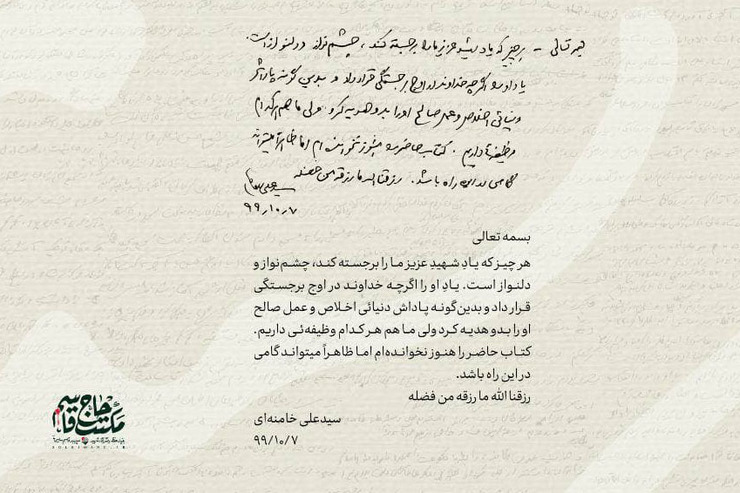 بسمه تعالی - هر چیز که یاد شهید عزیز ما را برجسته کند، چشم‌نواز و دلنواز است.
یاد او را اگرچه خداوند در اوج برجستگی قرار داد و بدین گونه پاداش
دنیائی اخلاص و عمل صالح او را بدو هدیه کرد ولی ما هم هر کدام
وظیفه‌ئی داریم. کتاب حاضر را هنوز نخوانده‌ام اما ظاهراً میتواند
گامی در این راه باشد. رزقنا الله ما رزقه من فضله
سیدعلی خامنه‌ای
۹۹/۱۰/۷
بسمه تعالی
هر چیز که یادِ شهیدِ عزیز ما را برجسته کند، چشم‌نواز و
دلنواز است. یادِ او را اگرچه خداوند در اوج برجستگی
قرار داد و بدین‌گونه پاداش دنیائی اخلاص و عمل صالح
او را بدو هدیه کرد ولی ما هم هر کدام وظیفه‌ئی داریم.
کتاب حاضر را هنوز نخوانده‌ام اما ظاهراً میتواند گامی
در این راه باشد.
رزقنا الله ما رزقه من فضله
سیدعلی خامنه‌ای
۹۹/۱۰/۷
مکتب حاج قاسم
SOLEIMANI.IR